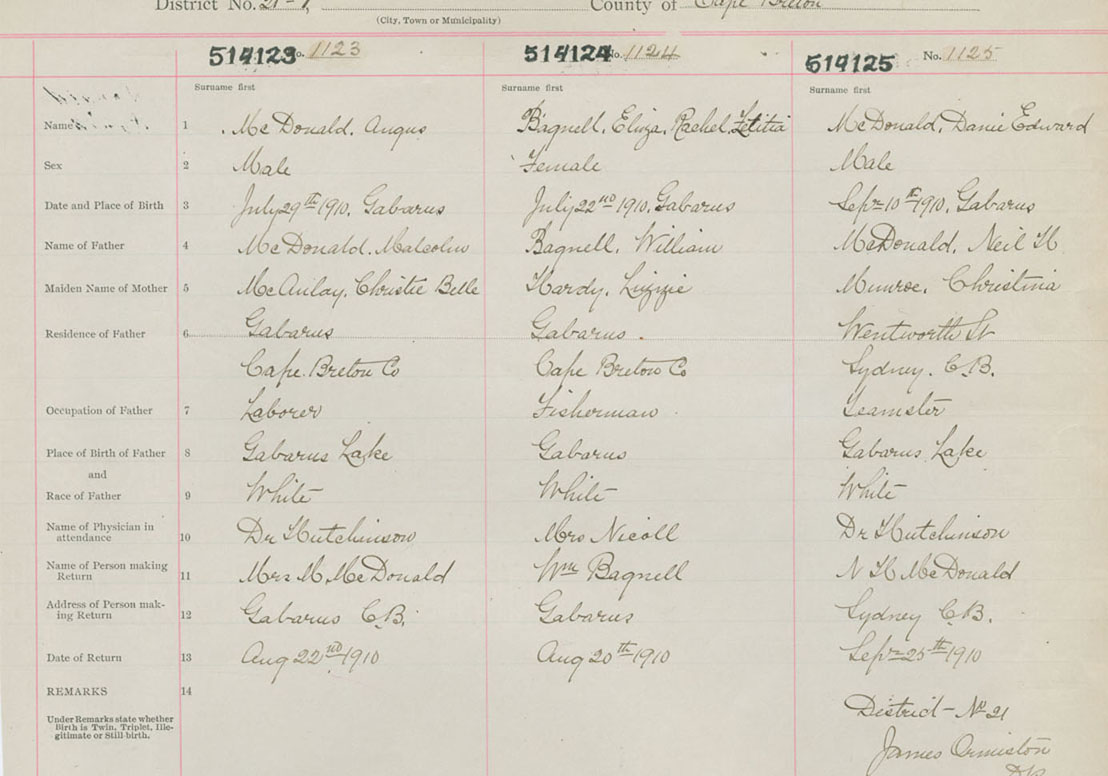 District No. 21-1, County of Cape Breton
(City, Town or Municipality)
514123 No. 1123 514124 No. 1124 514125 No. 1125
Surname first Surname first Surname first
Name 1 McDonald, Angus Bagnell, Eliza, Rachel, Letitia McDonald, Danie Edward
Sex 2 Male Female Male
Date and Place of Birth 3 July 29th 1910, Gabarus July 22nd 1910, Gabarus Sepr 10th 1910, Gabarus
Name of Father 4 McDonald, Malcolm Bagnell, William McDonald, Neil H
Maiden Name of Mother 5 McAulay, Christie Belle Hardy, Lizzie Munroe, Christina
Residence of Father 6 Gabarus Gabarus Wentworth St
Cape Breton Co Cape Breton Co Sydney, C.B.
Occupation of Father 7 Laborer Fisherman Teamster
Place of Birth of Father 8 Gabarus Lake Gabarus Gabarus Lake
and
Race of Father 9 White White White
Name of Physician in
attendance 10 Dr Hutchinson Mrs Nicoll Dr Hutchinson
Name of Person making
Return 11 Mrs M McDonald Wm Bagnell N H McDonald
Address of Person mak-
ing Return 12 Gabarus C.B. Gabarus Sydney C.B.
Date of Return 13 Aug 22nd 1910 Aug 20th 1910 Sepr 25th 1910
REMARKS 14
Under Remarks state whether
Birth is Twin, Triplet, Ille-
gitimate or Still-birth.
District - No 21
James Ormiston